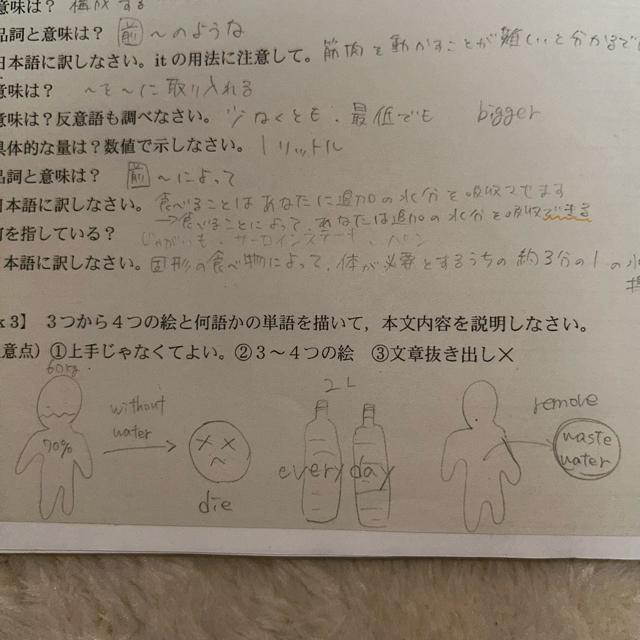 意味は? 構成する
品詞と意味は? 前 〜のような
日本語に訳しなさい。itの用法に注意して。 筋肉を動かすことが難しいと分かるで
意味は? 〜を〜に取り入れる
意味は?反意語も調べなさい。 少なくとも、最低でも bigger
具体的な量は?数値で示しなさい。 1リットル
品詞と意味は? 前 〜によって
日本語に訳しなさい。 食べることはあなたに追加の水分を吸収させます
→食べることによって、あなたは追加の水分を吸収できる
何を指している? じゃがいも、サーロインステーキ、パン
日本語に訳しなさい。 固形の食べ物によって、体が必要とするうちの約3分の1の水
k 3】 3つから4つの絵と何語かの単語を描いて,本文内容を説明しなさい。
意点)①上手じゃなくてよい。②3〜4つの絵 ③文章抜き出し×
70%
without
water
die
2L
every day
remove
waste
water